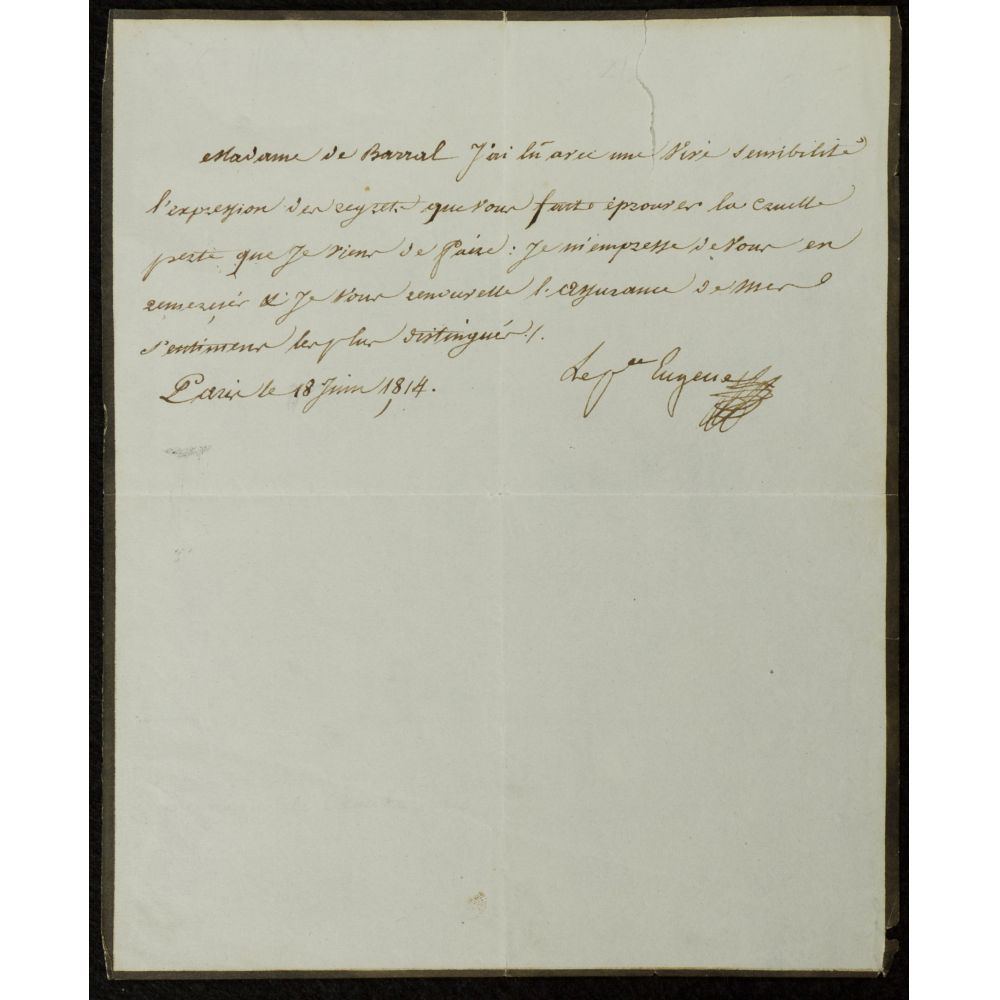 Madame de Barral J'ai lû avec une Vive sensibilité
l'expression des regrets que vous faite éprouver la cruelle
perte que Je viens de faire : Je m'empresse de Vous en
remercier & Je Vous renouvelle l'assurance de mes
sentimens les plus distingués ./.
Paris le 18 Juin 1814.
Le pce Eugene